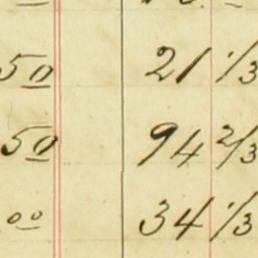 50 21 1/3
50 94 2/3
00 34 1/3